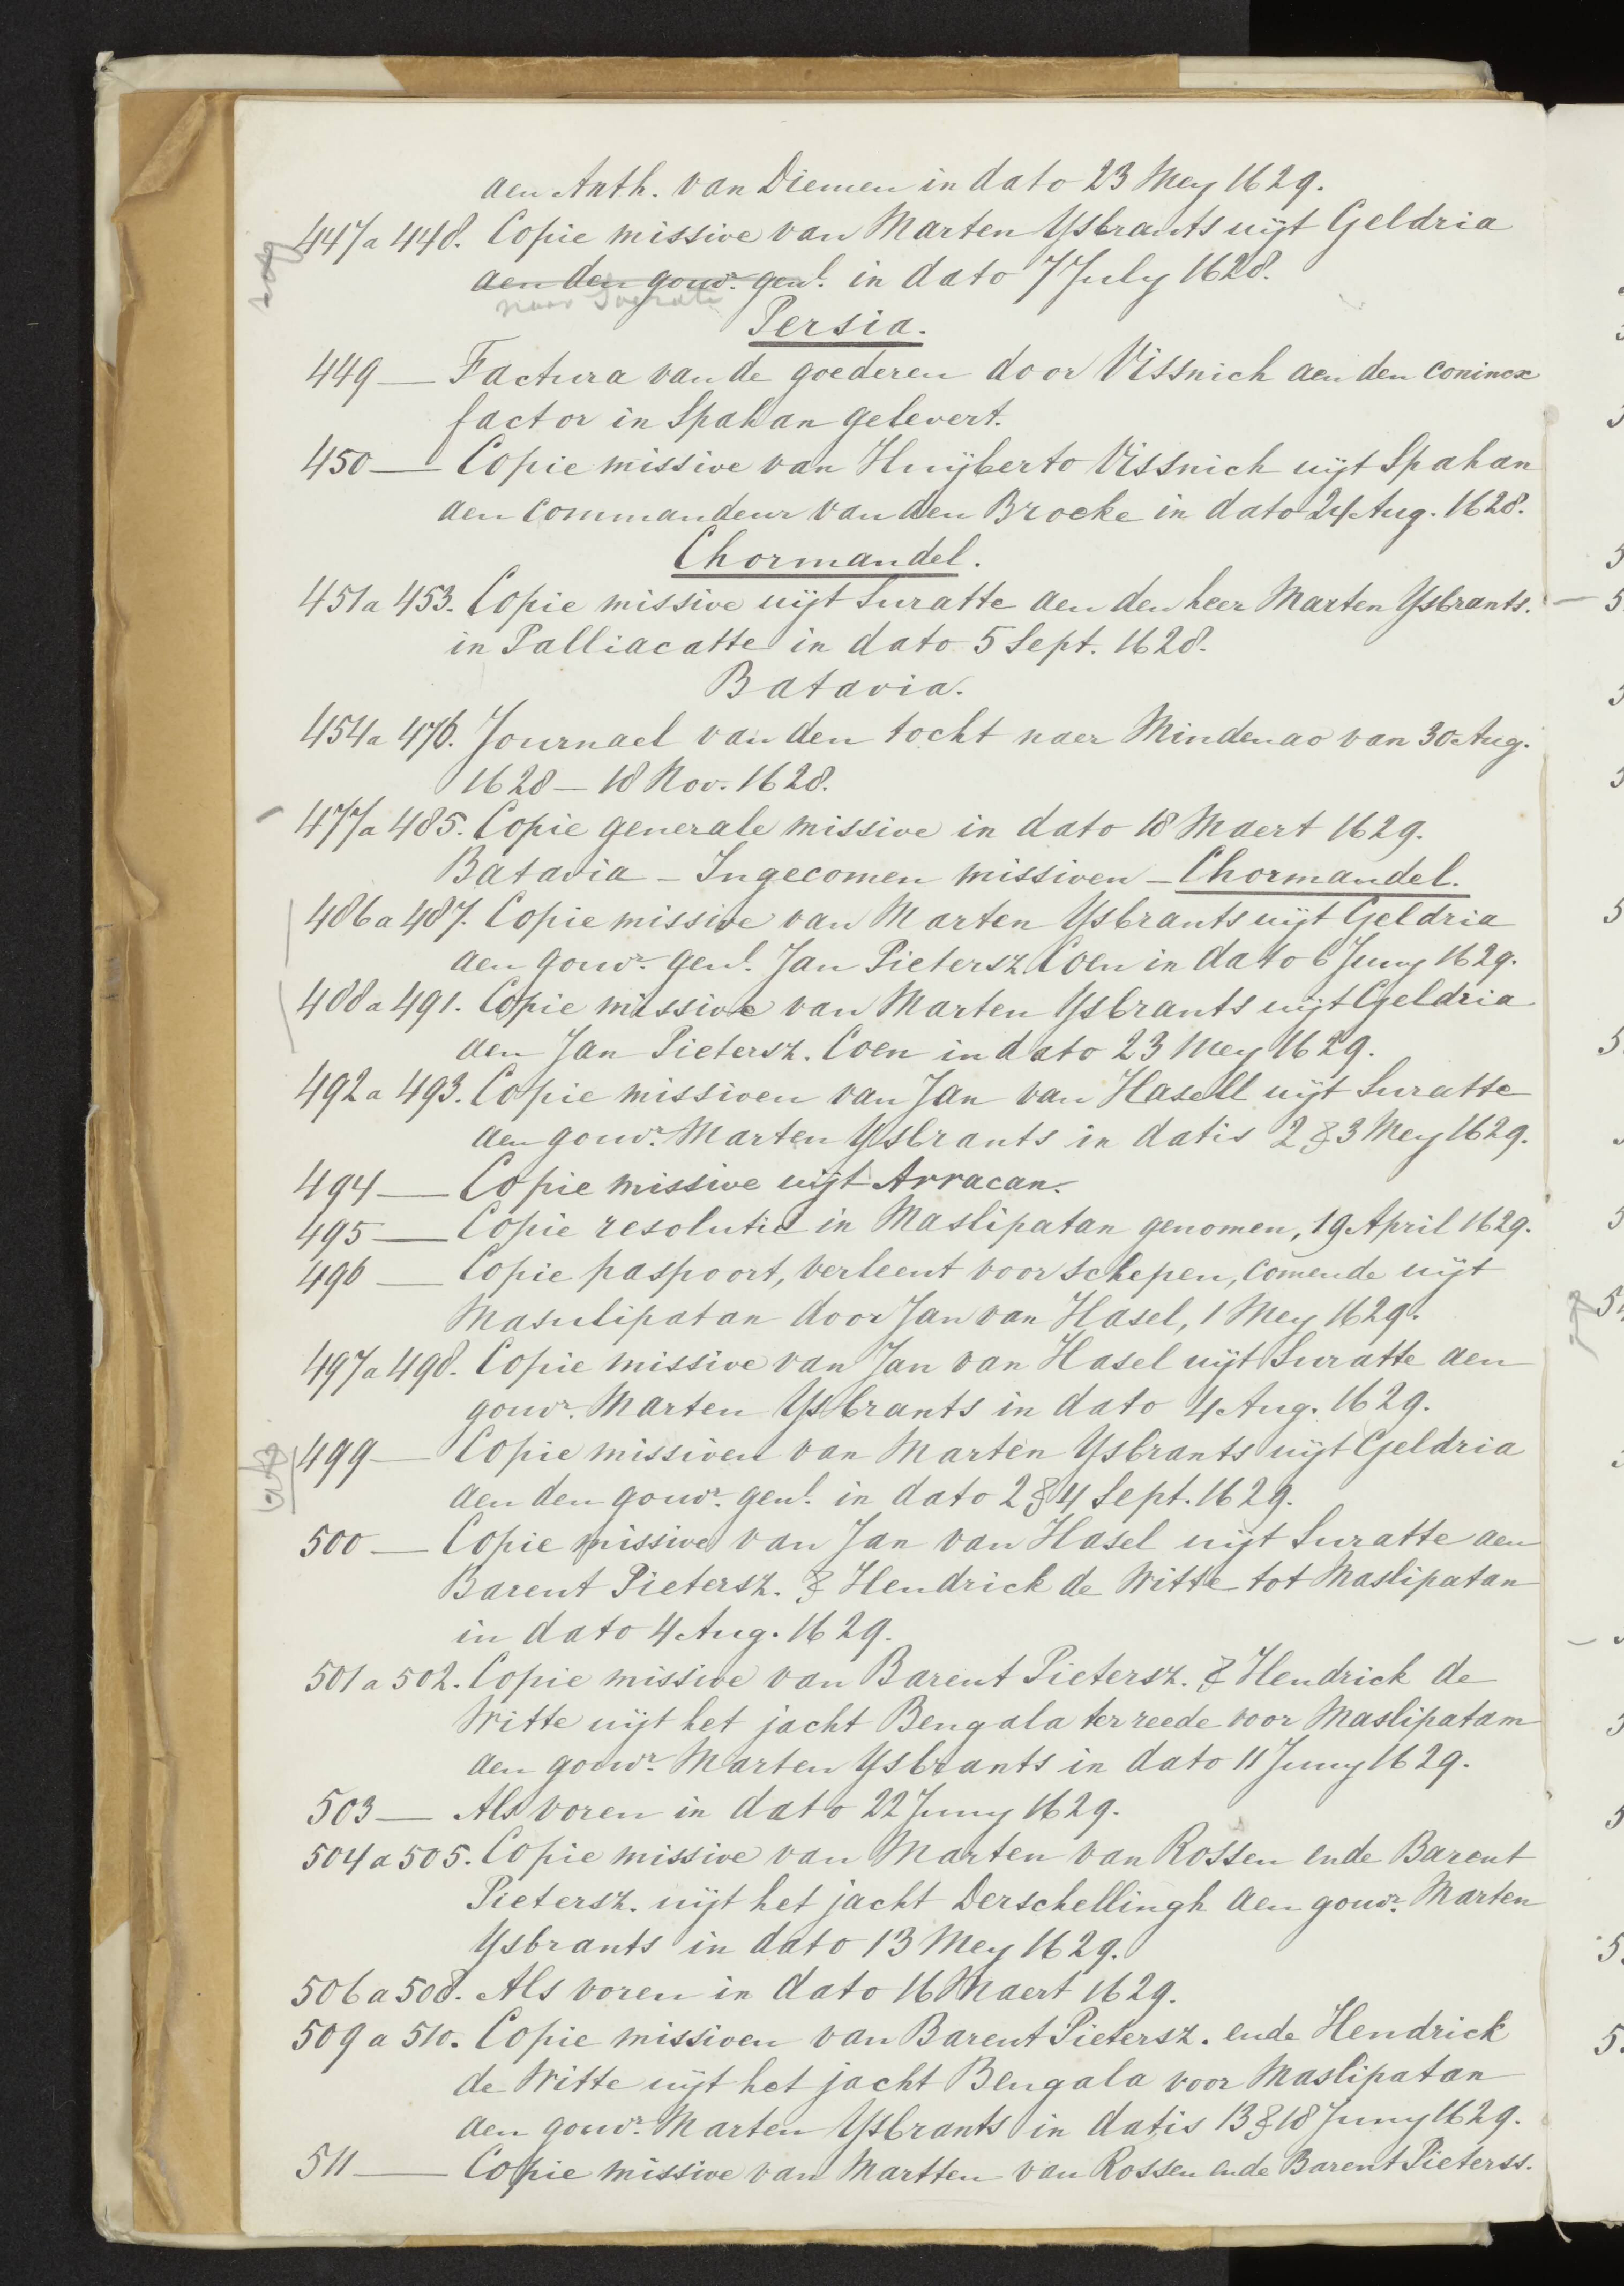 aen Anth. van Diemen in dato 23 Mey 1629.
447 a 448. Copie missive van Marten Ysbrants uÿt Geldria
aen den gouvr. genl. in dato 7 July 1628.
naar Soeratte
Persia.
449 — Factura van de goederen door Vissnich aen den conincx
factor in Spahan gelevert.
450 — Copie missive van Huÿberto Vissnich uÿt Spahan
aen commandeur van den Brocke in dato 24 Aug. 1628.
Chormandel.
451 a 453. Copie missive uÿt Suratte aen den heer Marten Ysbrants.
in Palliacatte in dato 5 Sept. 1628.
Batavia.
454 a 476. Journael van den tocht naer Mindenao van 30 Aug.
1628 — 18 Nov. 1628.
477 a 485. Copie generale missive in dato 18 Maert 1629.
Batavia — Ingecomen missiven — Chormandel.
486 a 487. Copie missive van Marten Ysbrants uÿt Geldria
aen gouvr. genl. Jan Pietersz Coen in dato 6 Juny 1629.
488 a 491. Copie missive van Marten Ysbrants uÿt Geldria
aen Jan Pietersz. Coen in dato 23 Mey 1629.
492 a 493. Copie missiven van Jan van Hasell uÿt Suratte
aen gouvr. Marten Ysbrants in datis 2 & 3 Mey 1629.
494 — Copie missive uÿt Arracan.
495 — Copie resolutie in Maslipatan genomen, 19 April 1629.
496 — Copie paspoort, verleent voor schepen, comende uÿt
Masulipatan door Jan van Hasel, 1 Mey 1629.
497 a 498. Copie missive van Jan van Hasel uÿt Suratte aen
gouvr. Marten Ysbrants in dato 4 Aug. 1629.
499 — Copie missiven van Marten Ysbrants uÿt Geldria
aen den gouvr. genl. in dato 2 & 4 Sept. 1629.
500 — Copie missive van Jan van Hasel uÿt Suratte aen
Barent Pietersz. & Hendrick de Witte tot Maslipatan
in dato 4 Aug. 1629.
501 a 502. Copie missive van Barent Pietersz. & Hendrick de
Witte uÿt het jacht Bengala ter reede voor Maslipatam
aen gouvr. Marten Ysbrants in dato 11 Juny 1629.
503 — Als voren in dato 22 Juny 1629.
504 a 505. Copie missive van Marten van Rossen ende Barent
Pietersz. uÿt het jacht Derschellingh aen gouvr. Marten
Ysbrants in dato 13 Mey 1629.
506 a 508. Als voren in dato 16 Maert 1629.
509 a 510. Copie missiven van Barent Pietersz. ende Hendrick
de Witte uÿt het jacht Bengala voor Maslipatan
aen gouvr. Marten Ysbrants in datis 13 & 18 Juny 1629.
511 — Copie missive van Martten van Rossen ende Barent Pieterss.